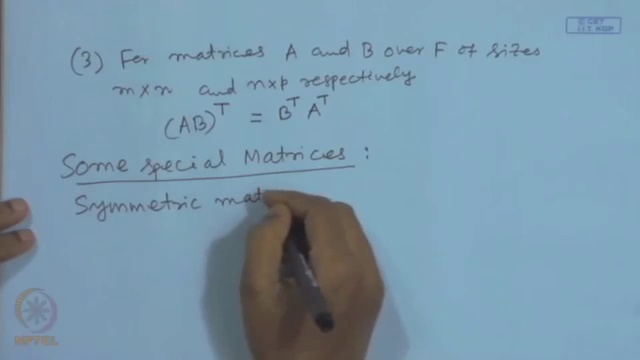 © CET
I.I.T. KGP
(3) For matrices A and B over F of sizes
m×n and n×p respectively
(AB)^T = B^T A^T
Some special Matrices :
Symmetric mat
NPTEL